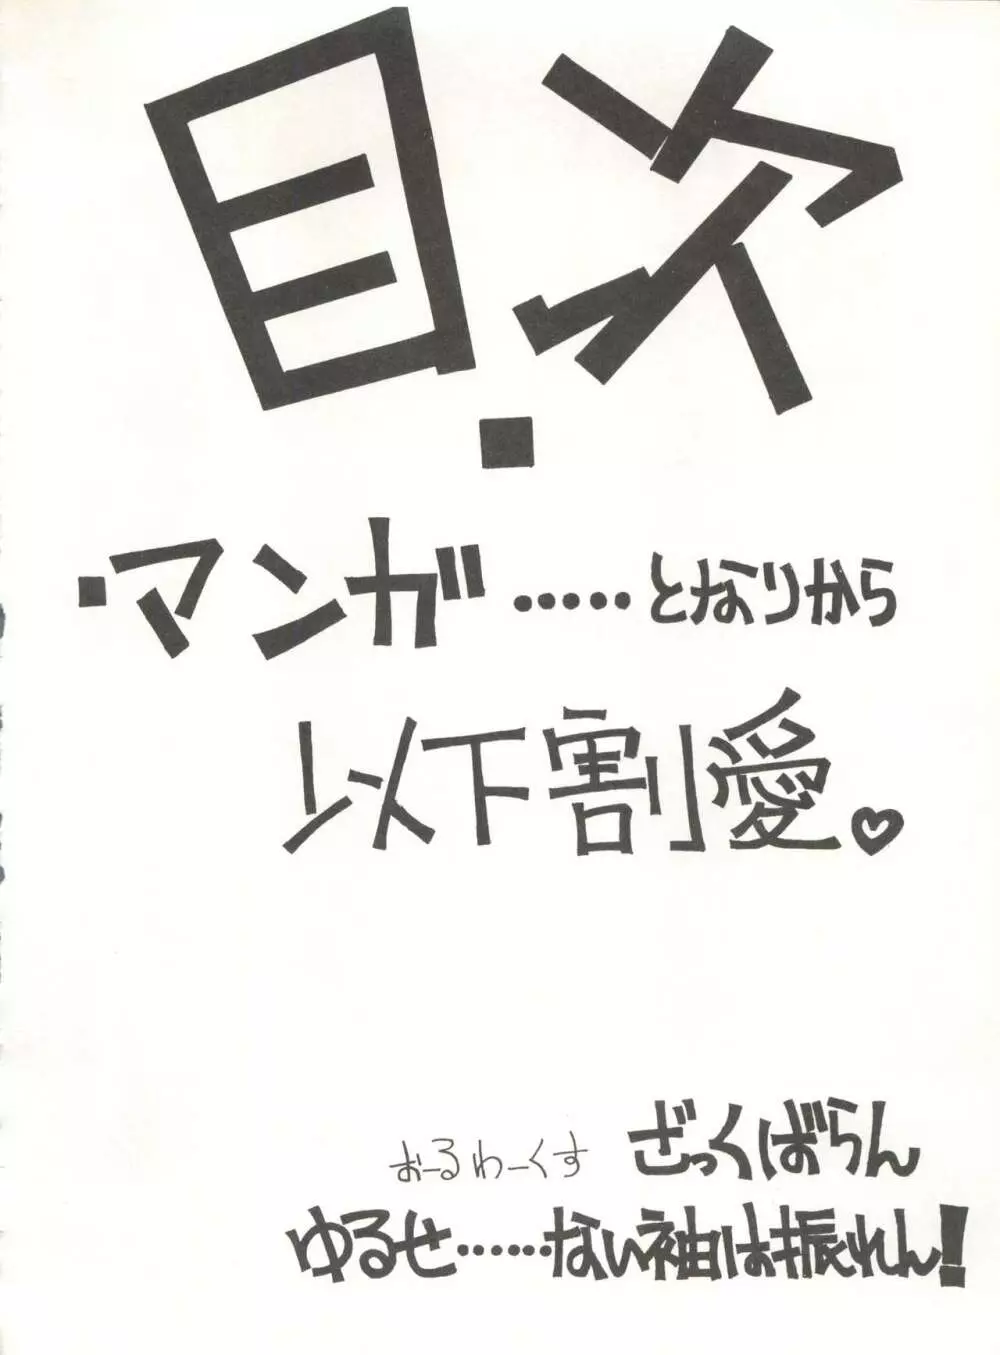 目次
・マンガ・・・・・となりから
以下割愛。♡
おーるわーくす ざっくばらん
ゆるせ・・・・・・ない袖は振れん!